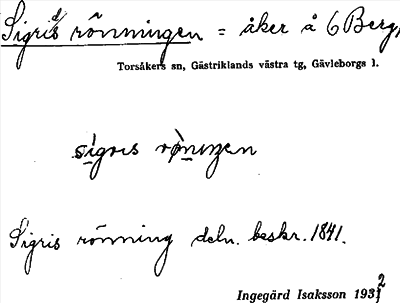 Sigrids rönningen = åker å 6 Berg,
Torsåkers sn, Gästriklands västra tg, Gävleborgs l.
sigris rönıŋen
Sigris rönning deln. beskr. 1841.
Ingegärd Isaksson 1932